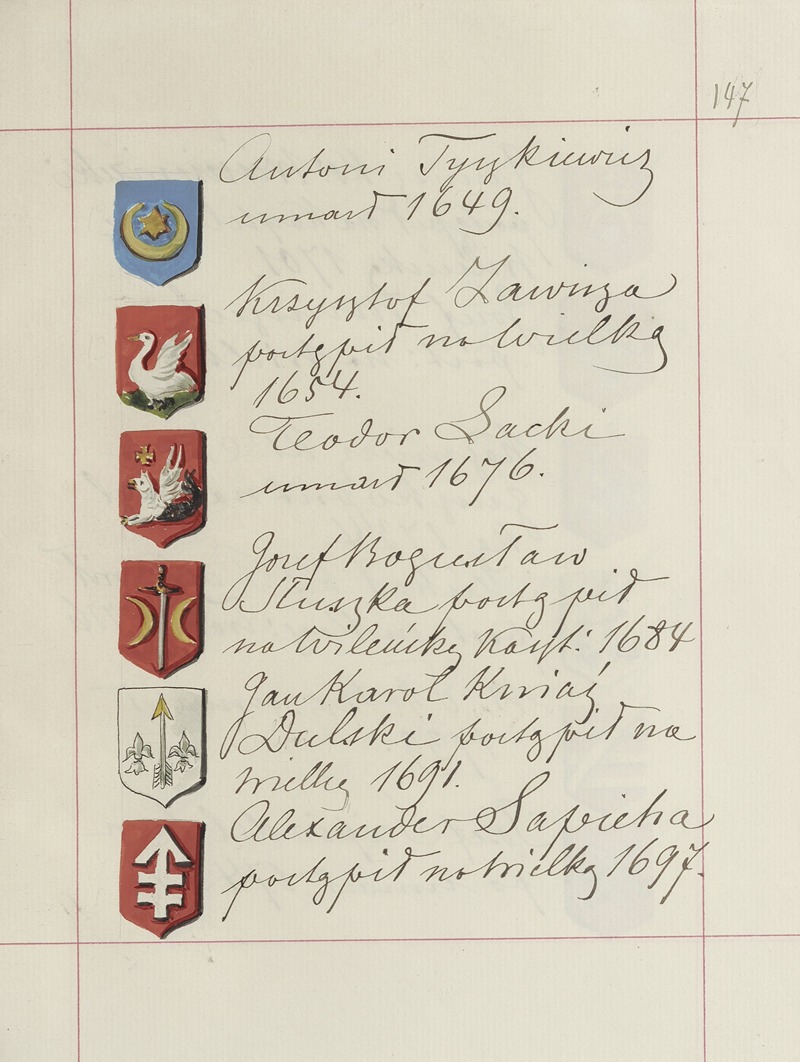 147
Antoni Tyszkiewicz
umarł 1649.
Krzysztof Zawisza
postąpił na wielką
1654.
Teodor Lacki
umarł 1676.
Józef Bogusław
Słuszka postąpił
na wileńską Kaszt: 1684
Jan Karol Kniaź
Dulski postąpił na
wielką 1691.
Alexander Sapieha
postąpił na wielką 1697.